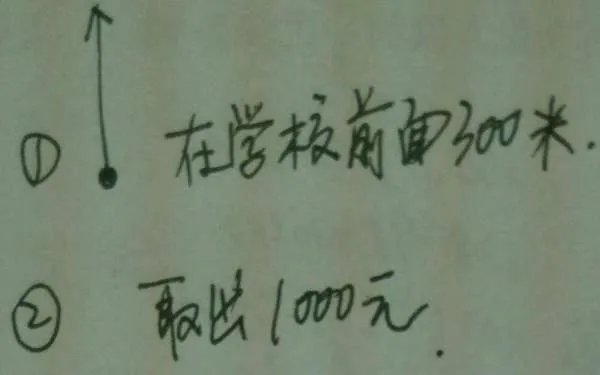 ① 在学校前面300米.
② 取出1000元.